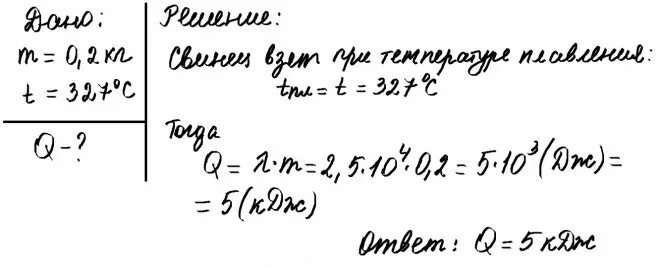 Дано:
m = 0,2 кг
t = 327°C
Q - ?
Решение:
Свинец взят при температуре плавления:
tпл = t = 327°C
Тогда
Q = λ·m = 2,5·10⁴·0,2 = 5·10³ (Дж) =
= 5 (кДж)
Ответ: Q = 5 кДж